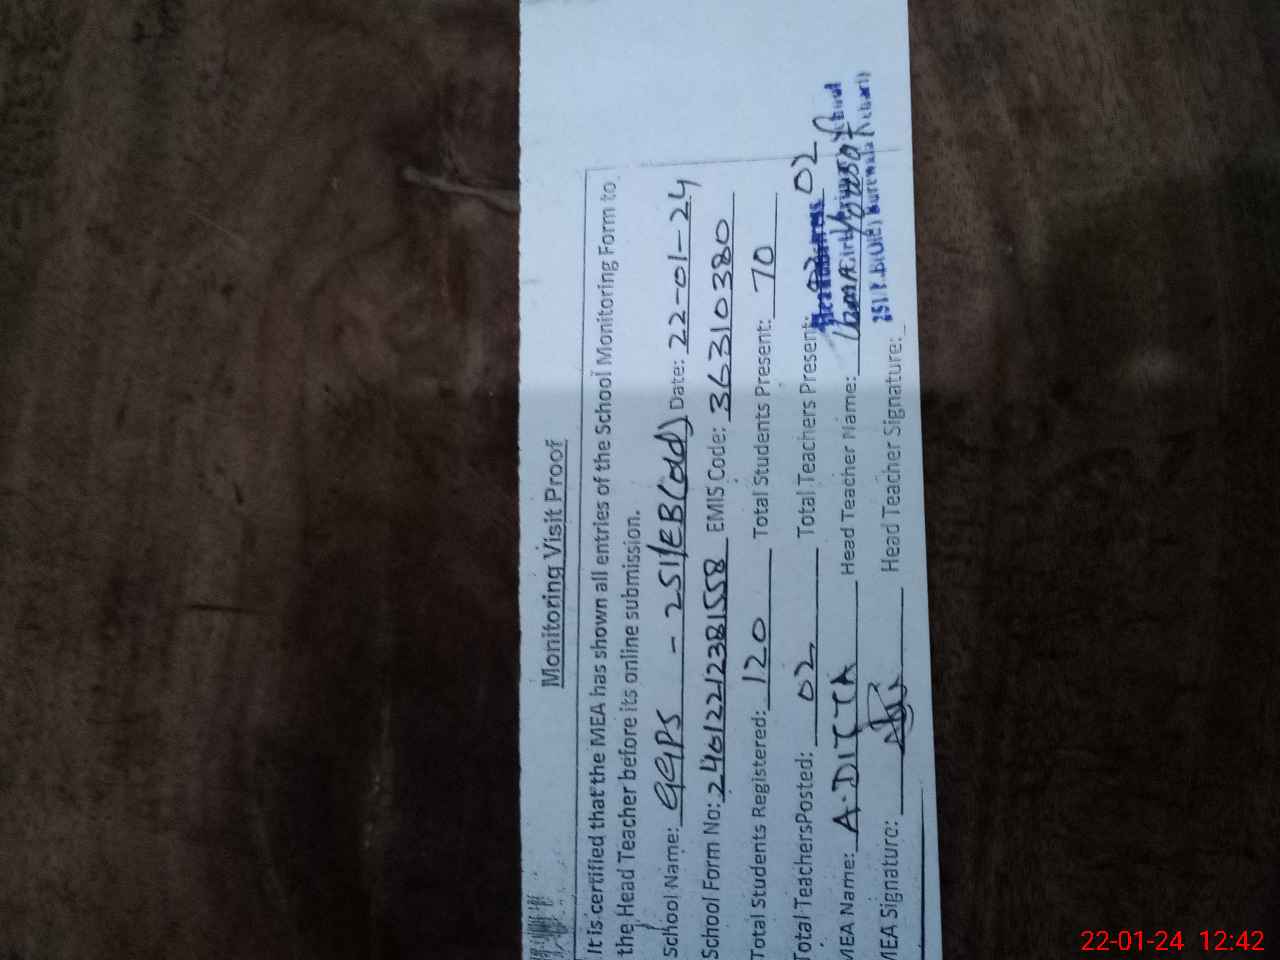 Monitoring Visit Proof
It is certified that the MEA has shown all entries of the School Monitoring Form to
the Head Teacher before its online submission.
School Name: GGPS - 251/EB(old) Date: 22-01-24
School Form No: 24012212381558 EMIS Code: 36310380
Total Students Registered: 120 Total Students Present: 70
Total TeachersPosted: 02 Total Teachers Present: 02
MEA Name: A.DITTA Head Teacher Name:
MEA Signature: Head Teacher Signature:
22-01-24 12:42